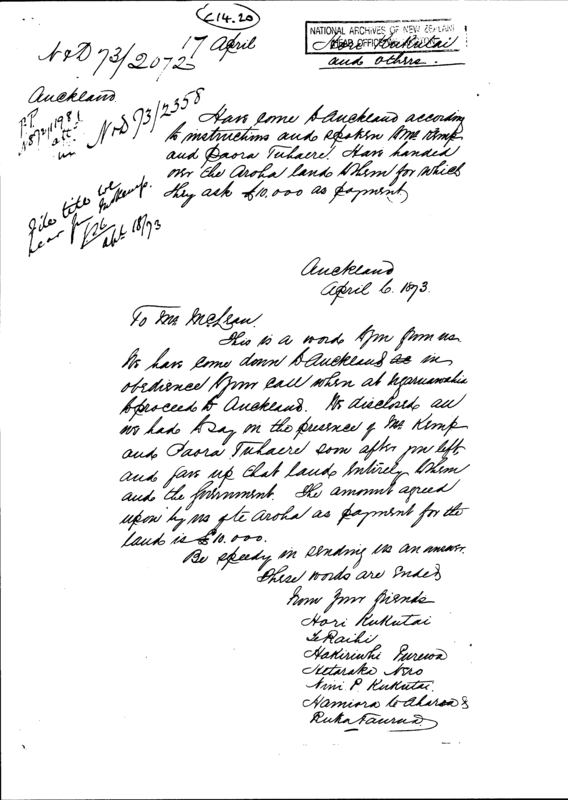 C14.20
NATIONAL ARCHIVES OF NEW ZEALAND
HEAD OFFICE
N&D 73/2072
17 April
Hori Kukutai
and others.
Auckland
N&D 73/2358
Have come to Auckland according
to instructions and spoken to Mr Kemp
and Paora Tuhaere. Have handed
over the Aroha land to them for which
they ask £10.000 as payment
file till we
hear from Mr Kemp.
Apl 18/73
Auckland
April 6. 1873.
To Mr McLean.
This is a word to you from us.
We have come down to Auckland in
obedience to your call when at Ngaruawahia
to proceed to Auckland. We disclosed all
we had to say in the presence of Mr Kemp
and Paora Tuhaere soon after you left
and gave up that land entirely to them
and the Government. The amount agreed
upon by us of te Aroha as payment for the
land is £10.000.
Be speedy in sending us an answer.
These words are ended
from your friends
Hori Kukutai
Te Raihi
Hakiriwhi Purewa
Nini P. Kukutai.
Hamiora
Ruka Taurua